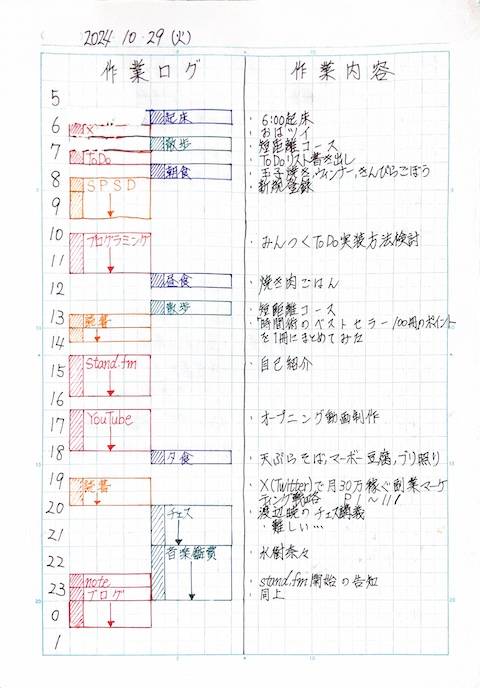 2024 10・29 (火)
作業ログ 作業内容
5
6 起床 ・6:00起床
X ・おはツイ
7 散歩 ・短距離コース
ToDo ・ToDoリスト書き出し
8 朝食 ・玉子焼き,ウィンナー,きんぴらごぼう
SPSD ・新規登録
9
10 プログラミング ・みんつくToDo実装方法検討
11
12 昼食 ・焼き肉ごはん
13 散歩 ・短距離コース
読書 ・「時間術のベストセラー100冊のポイント
14 を1冊にまとめてみた
15 Stand.fm ・自己紹介
16
17 YouTube ・オープニング動画制作
18 夕食 ・天ぷらそば,マーボー豆腐,ブリ照り
19 読書 ・X(Twitter)で月30万稼ぐ副業マーケ
ティング P1~111
20 チェス ・渡辺暁のチェス講義
21 ・難しい…
22 音楽鑑賞 ・水樹奈々
23 note ・stand.fm開始の告知
ブログ ・同上
0
1